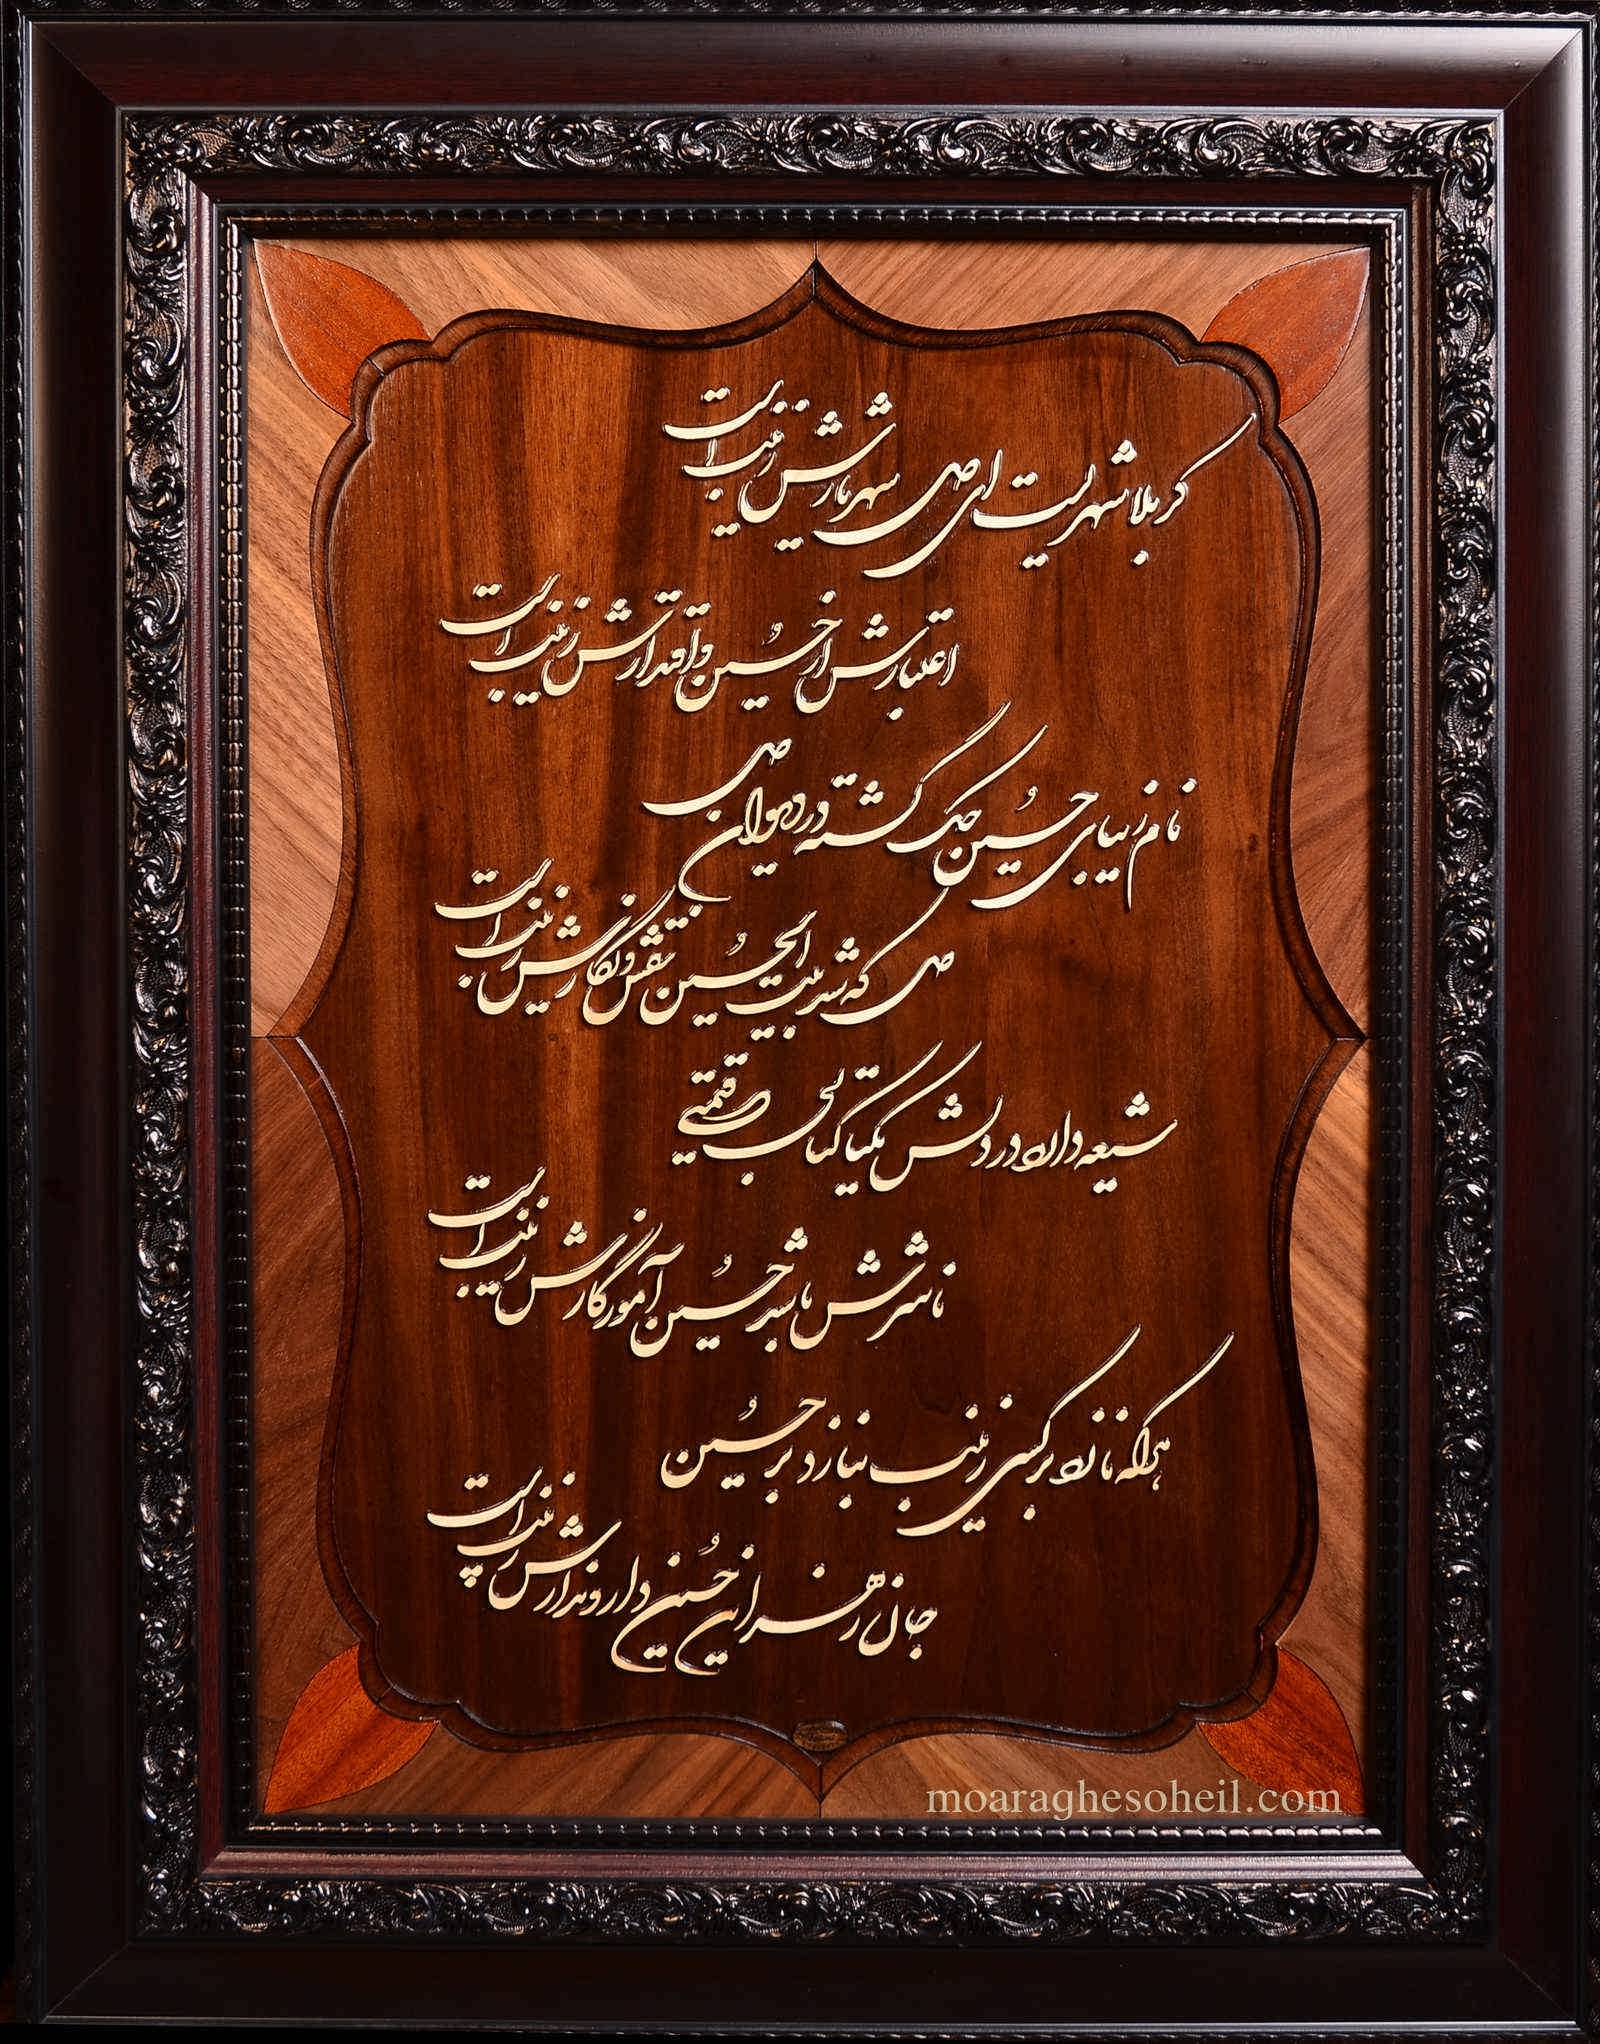 کربلا شهریست ای دل شهریارش زینب است
اعتبارش از حسین و اقتدارش زینب است
نام زیبای حسین حک گشته در دیوان دل
دل که شد بیت الحسین نقش و نگارش زینب است
شیعه دارد در دلش یکتا کتاب قیمتی
ناشرش باشد حسین آموزگارش زینب است
هرکه نازد بر کسی زینب بنازد بر حسین
جان زهرا این حسین دار و ندارش زینب است
moaraghesoheil.com